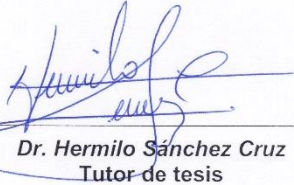 Dr. Hermilo Sánchez Cruz
Tutor de tesis